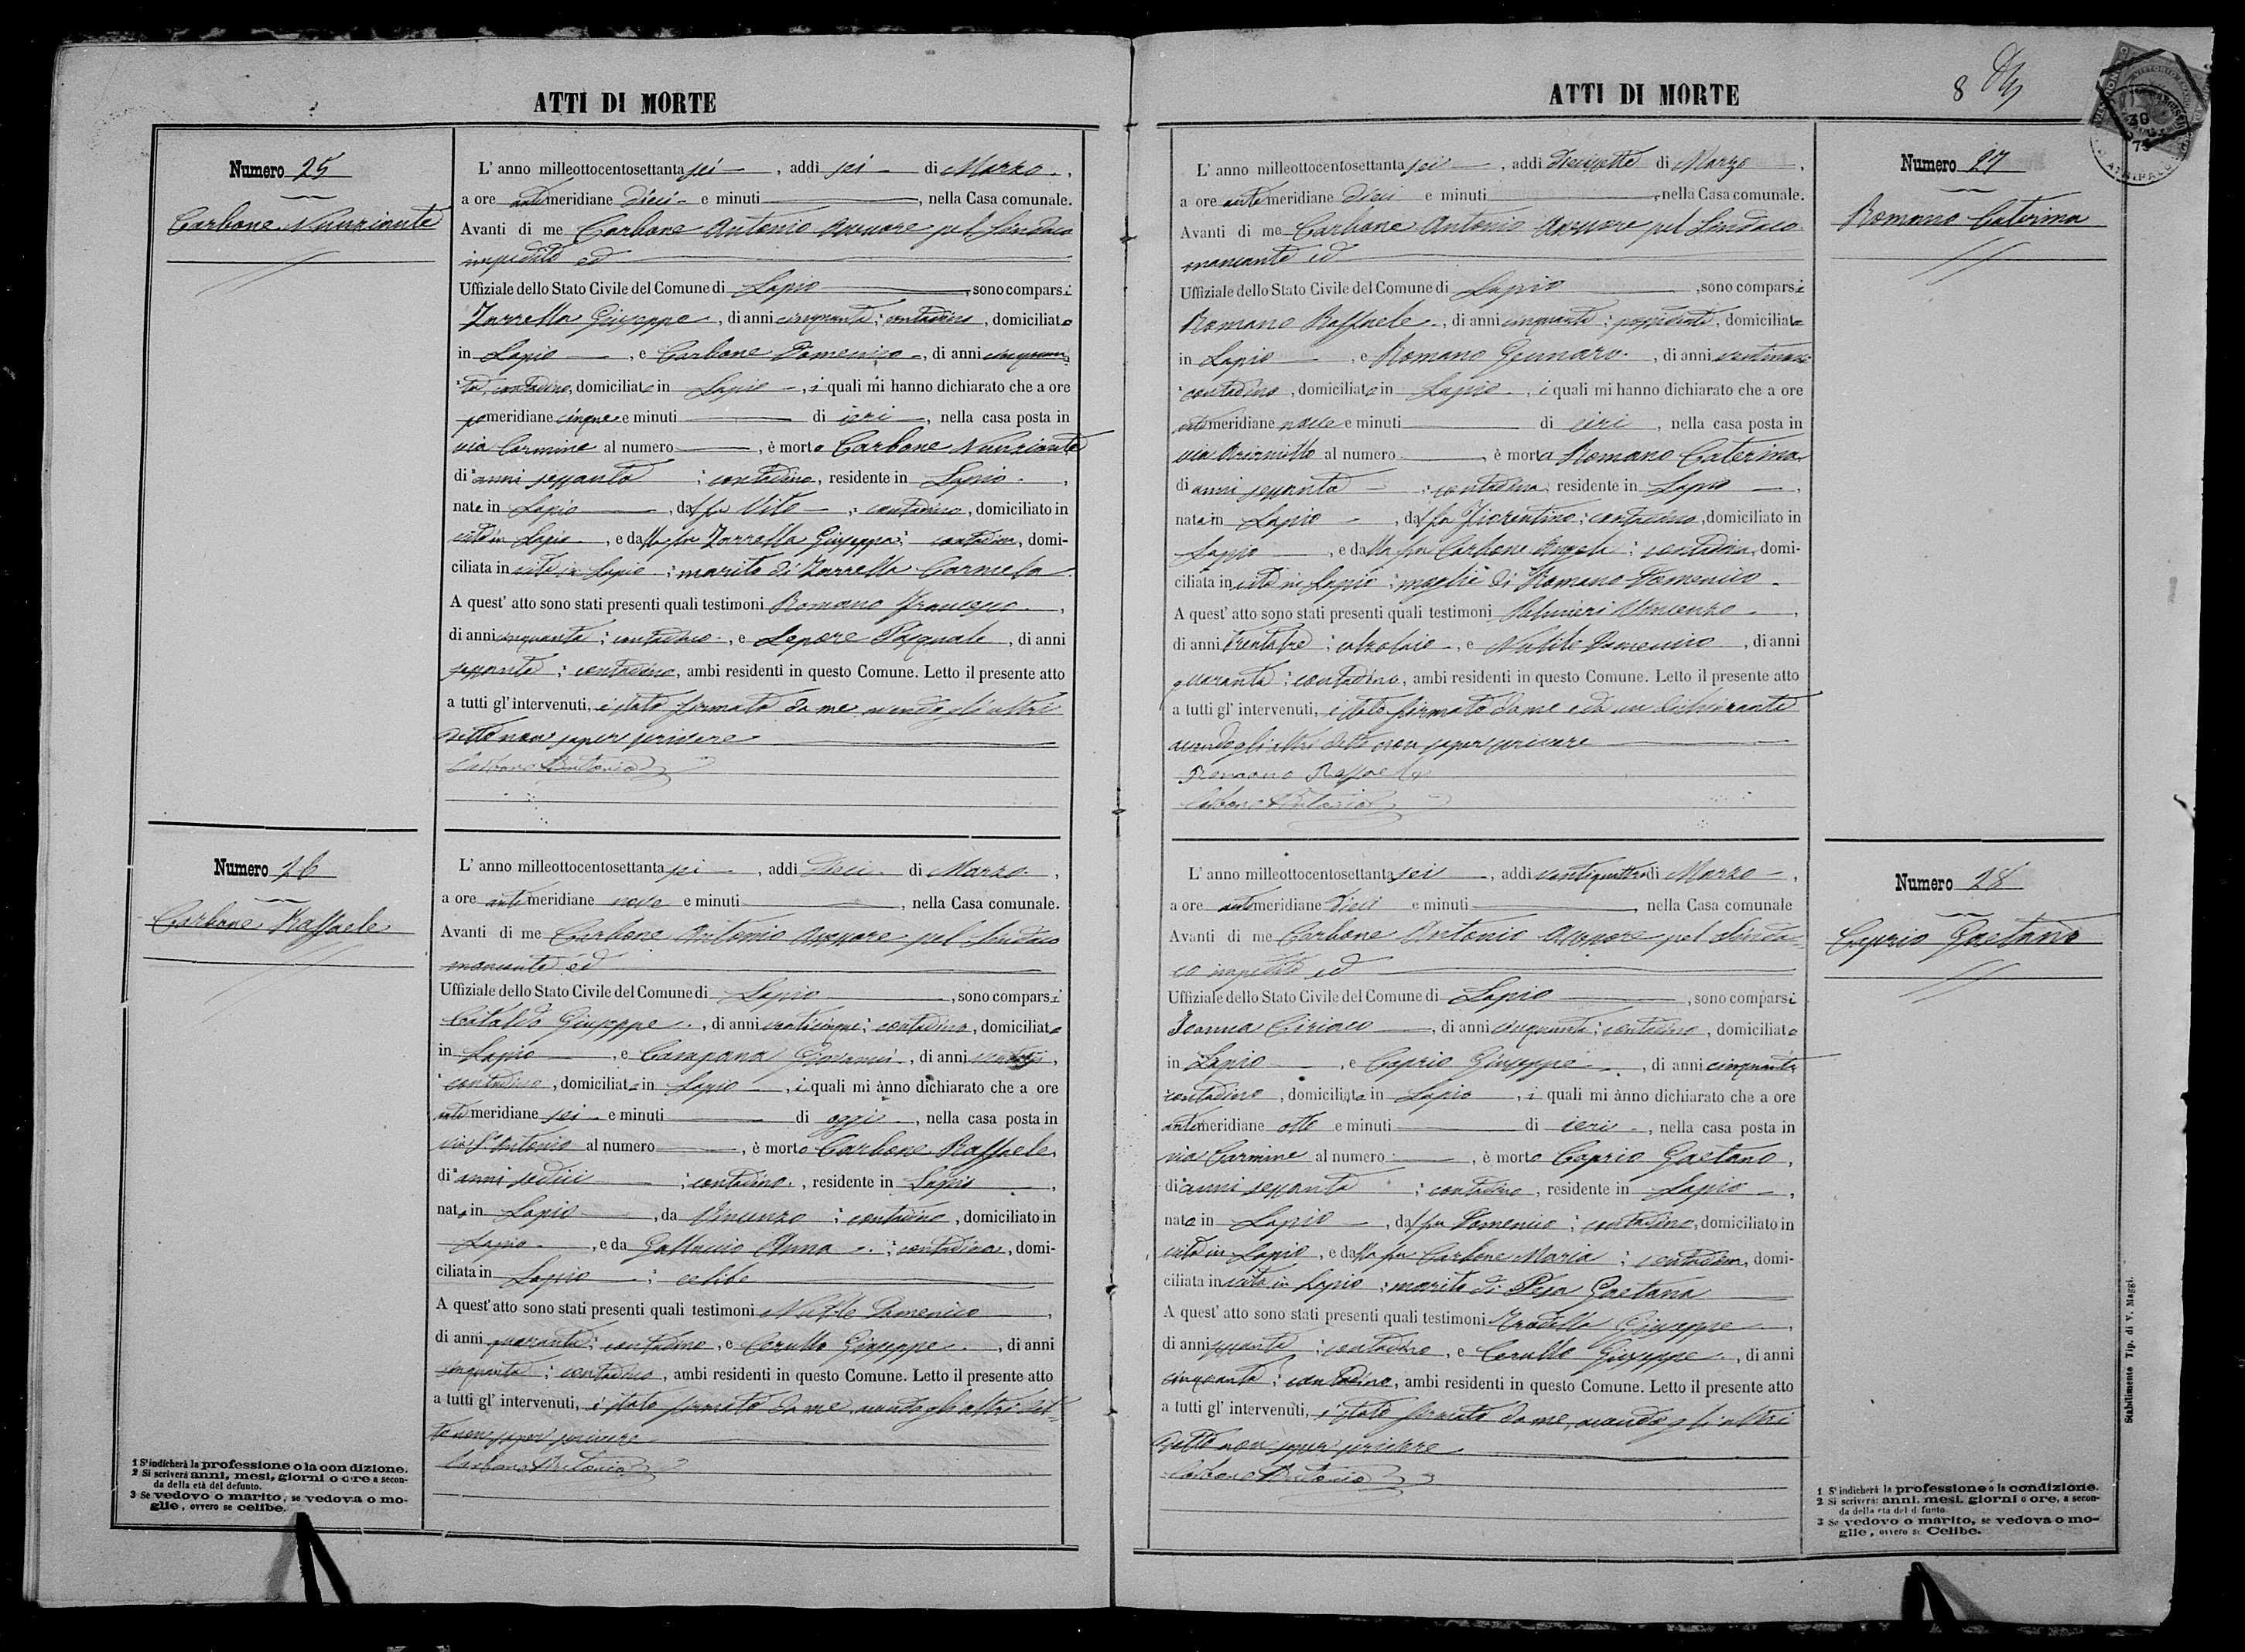 ATTI DI MORTE
Numero 25
Carbone Nunziante
L' anno milleottocentosettanta sei, addì sei di Marzo,
a ore antimeridiane dieci e minuti, nella Casa comunale.
Avanti di me Carbone Antonio Assessore pel Sindaco
impedito ed
Uffiziale dello Stato Civile del Comune di Lapio, sono comparsi
Zarrella Giuseppe, di anni cinquanta; contadino, domiciliato
in Lapio, e Carbone Domenico, di anni cinquan
ta, contadino, domiciliato in Lapio, i quali mi hanno dichiarato che a ore
pomeridiane cinque e minuti di ieri, nella casa posta in
via Carmine al numero, è morto Carbone Nunziante
di anni sessanta; contadino, residente in Lapio,
nato in Lapio, dal fu Vito; contadino, domiciliato in
vita in Lapio, e dalla fu Zarrella Giuseppa; contadina, domi-
ciliata in vita in Lapio; marito di Zarrella Carmela
A quest' atto sono stati presenti quali testimoni Romano Francesco,
di anni cinquanta; contadino, e Lepore Pasquale, di anni
sessanta; contadino, ambi residenti in questo Comune. Letto il presente atto
a tutti gl' intervenuti, è stato firmato da me avendo gli altri
detto non saper scrivere
Carbone Antonio
Numero 26
Carbone Raffaele
L' anno milleottocentosettanta sei, addì dieci di Marzo,
a ore antimeridiane nove e minuti, nella Casa comunale.
Avanti di me Carbone Antonio Assessore pel Sindaco
mancante ed
Uffiziale dello Stato Civile del Comune di Lapio, sono comparsi
Cataldo Giuseppe, di anni venticinque; contadino, domiciliato
in Lapio, e Campana Giovanni, di anni
contadino, domiciliato in Lapio, i quali mi ànno dichiarato che a ore
antimeridiane sei e minuti di oggi, nella casa posta in
via S. Antonio al numero, è morto Carbone Raffaele,
di anni sedici; contadino, residente in Lapio,
nato in Lapio, da Vincenzo; contadino, domiciliato in
Lapio, e da Galluccio Anna; contadina, domi-
ciliata in Lapio; celibe
A quest' atto sono stati presenti quali testimoni Domenico,
di anni quaranta; contadino, e Cerullo Giuseppe, di anni
cinquanta; contadino, ambi residenti in questo Comune. Letto il presente atto
a tutti gl' intervenuti, è stato firmato da me, avendo gli altri det-
to non saper scrivere
Carbone Antonio
1 S' indicherà la professione o la condizione.
2 Si scriverà anni, mesi, giorni o ore a secon-
da della età del defunto.
3 Se vedovo o marito, se vedova o mo-
glie, ovvero se celibe.
ATTI DI MORTE
8
30
75
Numero 27
Romano Caterina
L' anno milleottocentosettanta sei, addì diecisette di Marzo,
a ore antimeridiane dieci e minuti, nella Casa comunale.
Avanti di me Carbone Antonio Assessore pel Sindaco
mancante ed
Uffiziale dello Stato Civile del Comune di Lapio, sono comparsi
Romano Raffaele, di anni cinquanta; possidente, domiciliato
in Lapio, e Romano Gennaro, di anni
contadino, domiciliato in Lapio, i quali mi hanno dichiarato che a ore
antimeridiane nove e minuti di ieri, nella casa posta in
via al numero, è morta Romano Caterina
di anni sessanta; contadina, residente in Lapio,
nata in Lapio, dal fu Fiorentino; contadino, domiciliato in
Lapio, e dalla fu Carbone Angela; contadina, domi-
ciliata in vita in Lapio; moglie di Romano Domenico
A quest' atto sono stati presenti quali testimoni Vincenzo,
di anni trentatre; calzolaio, e Domenico, di anni
quaranta; contadino, ambi residenti in questo Comune. Letto il presente atto
a tutti gl' intervenuti, è stato firmato da me e da un dichiarante
avendo gli altri detto non saper scrivere
Romano Raffaele
Carbone Antonio
Numero 28
Caprio Gaetano
L' anno milleottocentosettanta sei, addì ventiquattro di Marzo,
a ore antimeridiane dieci e minuti, nella Casa comunale
Avanti di me Carbone Antonio Assessore pel Sinda-
co impedito ed
Uffiziale dello Stato Civile del Comune di Lapio, sono comparsi
Ciriaco, di anni cinquanta; contadino, domiciliato
in Lapio, e Caprio Giuseppe, di anni cinquanta
contadino, domiciliato in Lapio, i quali mi ànno dichiarato che a ore
antimeridiane otto e minuti di ieri, nella casa posta in
via Carmine al numero, è morto Caprio Gaetano,
di anni sessanta; contadino, residente in Lapio,
nato in Lapio, dal fu Domenico; contadino, domiciliato in
vita in Lapio, e dalla fu Carbone Maria; contadina, domi-
ciliata in vita in Lapio; marito di Pesa Gaetana
A quest' atto sono stati presenti quali testimoni Giuseppe,
di anni sessanta; contadino, e Cerullo Giuseppe, di anni
cinquanta; contadino, ambi residenti in questo Comune. Letto il presente atto
a tutti gl' intervenuti, è stato firmato da me, avendo gli altri
detto non saper scrivere
Carbone Antonio
1 S' indicherà la professione o la condizione.
2 Si scriverà: anni, mesi, giorni o ore, a secon-
da della età del defunto
3 Se vedovo o marito, se vedova o mo-
glie, ovvero se Celibe.
Stabilimento Tip. di V. Maggi.